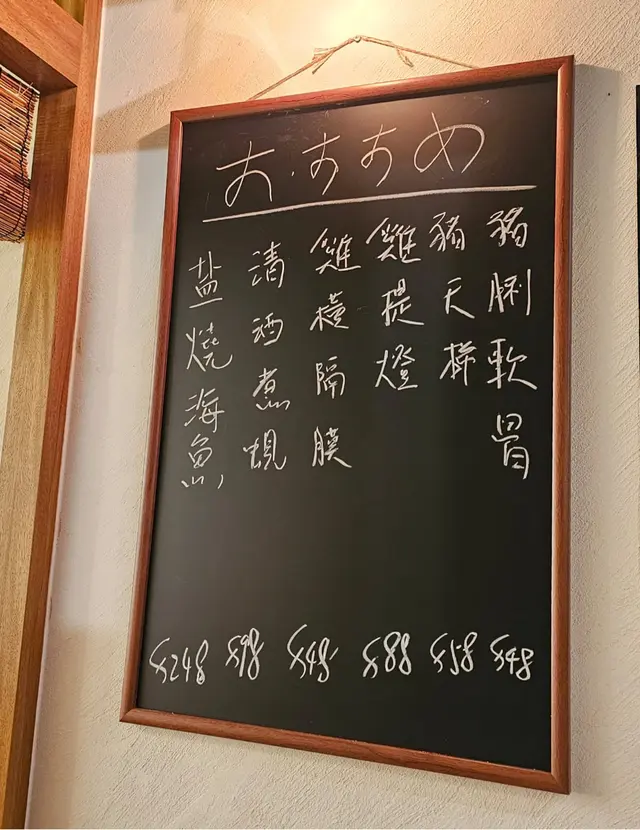 おすすめ
豬脷軟骨 $48
豬天梯 $58
雞提燈 $88
雞橫隔膜 $48
清酒煮蜆 $98
盐燒海魚 $248